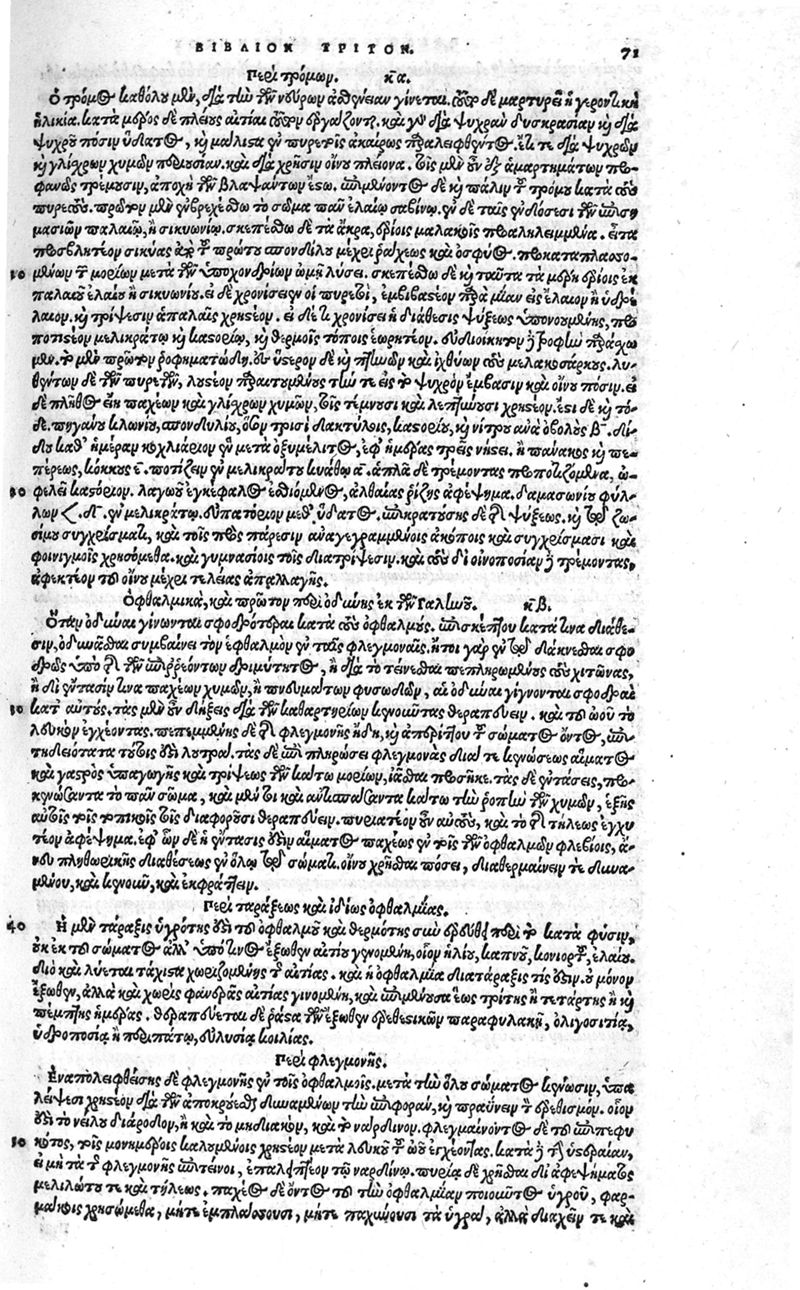 ΒΙΒΛΙΟΝ ΤΡΙΤΟΝ. 71
Περὶ τρόμων. κα.
Ὁ τρόμος καθόλου μὲν, διὰ τὴν τῶν νεύρων ἀσθένειαν γίνεται. τοῦτο δὲ μαρτυρεῖ ἡ γεροντικὴ
ἡλικία. κατὰ μέρος δὲ πλείους αἰτίαι τοῦτον ἐργάζονται. καὶ γὰρ διὰ ψυχρὰν δυσκρασίαν καὶ διὰ
ψυχροῦ πόσιν ὕδατος, καὶ μάλιστα ἐν πυρετοῖς ἀκαίρως παραλειφθέντος. ἔκ τε διὰ ψυχρῶν
καὶ γλίχρων χυμῶν περιουσίαν. καὶ διὰ χρῆσιν οἴνου πλείονα. τοῖς μὲν οὖν ἐξ ἁμαρτημάτων προ
φανῶς τρέμουσιν, ἀποχὴ τῶν βλαψάντων ἔσω. ἐπιμένοντος δὲ καὶ πάλιν τοῦ τρόμου κατὰ τοὺς
πυρετούς. πρῶτον μὲν ἐμβρεχέσθω τὸ σῶμα παν ἐλαίῳ σαβίνῳ. ἐν δὲ ταῖς ἐνδόσεσι τῶν ἐπιση
μασιῶν παλαιῷ, ἢ σικυωνίῳ. σκεπέσθω δὲ τὰ ἄκρα, ἐρίοις μαλακοῖς προαληλειμμένα. εἶτα
προσβλητέον σικύας ἀπὸ τοῦ πρώτου σπονδύλου μέχρι ῥάχεως καὶ ὀσφύος. προκαταπλασσο-
10 μένων τῶν μορίων μετὰ τῶν ὑποχονδρίων ὠμῇ λύσει. σκεπέσθω δὲ καὶ ταῦτα τὰ μέρη ἐρίοις ἐκ
παλαιοῦ ἐλαίου ἢ σικυωνίου. εἰ δὲ χρονίσειεν οἱ πυρετοὶ, ἐμβιβαστέον παρὰ μίαν εἰς ἔλαιον ἢ ὑδρέ
λαιον. καὶ τρίψεσιν ἁπαλαῖς χρηστέον. εἰ δὲ καὶ χρονίσῃ ἡ διάθεσις ψύξεως ὑπονοουμένης, προ
ποτιστέον μελικράτῳ καὶ καστορίῳ, καὶ θερμοῖς τόποις ἐωρητέον. εὐδιοίκητον ἢ τροφὴν παράσχω
μεν. τὸ μὲν πρῶτον ῥοφηματώδη. εἰς ὕστερον δὲ καὶ πτηνῶν καὶ ἰχθύων τοὺς μελακοσάρκους. λυ-
θέντων δὲ τῶν πυρετῶν, λυστέον παραιτουμένους τήν τε εἰς τὸ ψυχρὸν ἔμβασιν καὶ οἴνου πόσιν. εἰ
δὲ πλῆθος εἴη παχέων καὶ γλίχρων χυμῶν, τοῖς τέμνουσι καὶ λεπτύνουσι χρηστέον. ἔστι δὲ καὶ τό-
δε. πηγάνου κλωνίου, σπονδυλίου, ὅσον τρισὶ δακτύλοις, καστορίου, καὶ νίτρου ἀνὰ ὀβολοὺς β. δί-
δου καθ' ἡμέραν κοχλιάριον ἓν μετὰ ὀξυμέλιτος, ἐφ' ἡμέρας τρεῖς νήστει. ἢ πάνακος καὶ πε-
πέρεως, κόκκους ε. ποτίζειν ἐν μελικράτου κυάθῳ α. ἁπλᾶ δὲ τρέμοντας προποτιζόμενα, ὠ-
20 φελεῖ καστόριον. λαγωοῦ ἐγκέφαλος ἐσθιόμενος, ἀλθαίας ῥίζης ἀφέψημα. δαμασωνίου φύλ-
σίμου συγχρίσματι, καὶ τοῖς πρὸς πάρεσιν ἀναγεγραμμένοις ἀκόποις καὶ συγχρίσμασι καὶ
φοινιγμοῖς χρησόμεθα. καὶ γυμνασίοις τοῖς διατρίψεσιν. καὶ τοὺς δι' οἰνοποσίαν ἢ τρέμοντας,
ἀφεκτέον τοῦ οἴνου μέχρι τελείας ἀπαλλαγῆς.
Ὀφθαλμικὰ, καὶ πρῶτον περὶ ὀδύνης ἐκ τῶν Γαληνοῦ. κβ.
Ὅταν ὀδύναι γίνωνται σφοδρότεραι κατὰ τοὺς ὀφθαλμούς. ἐπισκέπτου κατὰ τίνα διάθε-
σιν, ὀδυνᾶσθαι συμβαίνει τὸν ὀφθαλμὸν ἐν ταῖς φλεγμοναῖς. ἤτοι γὰρ ἐν τῷ δάκνεσθαι σφο
δρῶς ὑπὸ τῆς τῶν ἐπιρρεόντων δριμύτητος, ἢ διὰ τὸ τείνεσθαι πεπληρωμένους τοὺς χιτῶνας,
ἢ δι' ἔντασίν τινα παχέων χυμῶν, ἢ πνευμάτων φυσωδῶν, αἱ ὀδύναι γίγνονται σφοδραὶ
30 κατ' αὐτούς. τὰς μὲν οὖν δήξεις διὰ τῶν καθαρτηρίων κενοῦντας θεραπεύειν. καὶ τοῦ ὠοῦ τὸ
λευκὸν ἐγχέοντας. πεπεμμένης δὲ τῆς φλεγμονῆς ἤδη, καὶ ἀπερίττου τοῦ σώματος ὄντος, ἐπι-
τηδειότατα τούτοις ἐστὶ λουτρά. τὰς δὲ ἐπὶ πληρώσει φλεγμονὰς διά τε κενώσεως αἵματος
καὶ γαστρὸς ὑπαγωγῆς καὶ τρίψεως τῶν κάτω μορίων, ἰᾶσθαι προσῆκε. τὰς δὲ ἐντάσεις, προ-
κενώσαντα τὸ πᾶν σῶμα, καὶ μέντοι καὶ ἀντισπάσαντα κάτω τὴν ῥοπὴν τῶν χυμῶν, ἑξῆς
αὖθις τοῖς τοπικοῖς τοῖς διαφοροῦσι θεραπεύειν. πυριατέον οὖν αὐτοὺς, καὶ τὸ τῆς τήλεως ἐγχυ
τέον ἀφέψημα. ἐφ' ὧν δὲ ἡ ἔντασίς ἐστιν αἵματος παχέως ἐν τοῖς τῶν ὀφθαλμῶν φλεβίοις, ἄ-
νευ πληθωρικῆς διαθέσεως ἐν ὅλῳ τῷ σώματι. οἴνου χρῆσθαι πόσει, διαθερμαίνειν τε δυνα-
μένου, καὶ κενοῦν, καὶ ἐκφράττειν.
Περὶ ταράξεως καὶ ἰδίως ὀφθαλμίας.
40 Ἡ μὲν τάραξις ὑγρότης ἐστὶ τοῦ ὀφθαλμοῦ καὶ θερμότης σὺν ἐρεύθει περὶ τὸ κατὰ φύσιν,
οὐκ ἐκ τοῦ σώματος ἀλλ' ὑπό τινος ἔξωθεν αἰτίου γενομένη, οἷον ἡλίου, καπνοῦ, κονιορτοῦ, ἐλαίου.
διὸ καὶ λύεται τάχιστα χωριζομένης τῆς αἰτίας. καὶ ἡ ὀφθαλμία διατάραξις τίς ἐστιν. οὐ μόνον
ἔξωθεν, ἀλλὰ καὶ χωρὶς φανερᾶς αἰτίας γινομένη, καὶ ἐπιμένουσα ἕως τρίτης ἢ τετάρτης ἢ καὶ
πέμπτης ἡμέρας. θεραπεύεται δὲ ῥᾷστα τῶν ἔξωθεν ἐρεθιστικῶν παραφυλακῇ, ὀλιγοσιτίᾳ,
ὑδροποσίᾳ ἢ περιπάτῳ, εὐλυσίᾳ κοιλίας.
Περὶ φλεγμονῆς.
Ἐναπολειφθείσης δὲ φλεγμονῆς ἐν τοῖς ὀφθαλμοῖς. μετὰ τὴν ὅλου σώματος κένωσιν, ὑπα
λείψεσι χρηστέον διὰ τῶν ἀποκρούεσθαι δυναμένων τὴν ἐπιφορὰν, καὶ πραΰνειν τὸν ἐρεθισμόν. οἷον
ἐστὶ τὸ νείλου διάροδον, ἢ καὶ τὸ μηδιακὸν, καὶ τὸ νάρδινον. φλεγμαίνοντος δὲ τοῦ ἐπιπεφυ
50 κότος, τοῖς μονημέροις καλουμένοις χρηστέον μετὰ λευκοῦ τοῦ ὠοῦ ἐγχέοντας. κατὰ δὲ τὴν ὑστεραίαν,
εἰ μὴ τὰ τῆς φλεγμονῆς ἐπιτείνοι, ἐπαλειπτέον τῷ ναρδίνῳ. πυρίᾳ δὲ χρῆσθαι δι' ἀφεψήματος
μελιλώτου τε καὶ τήλεως. παχέος δὲ ὄντος τοῦ τὴν ὀφθαλμίαν ποιοῦντος ὑγροῦ, φαρ-
μάκοις χρησώμεθα, μήτε ἐμπλάσσουσι, μήτε παχύνουσι τὰ ὑγρὰ, ἀλλὰ διαχεῖν τε καὶ